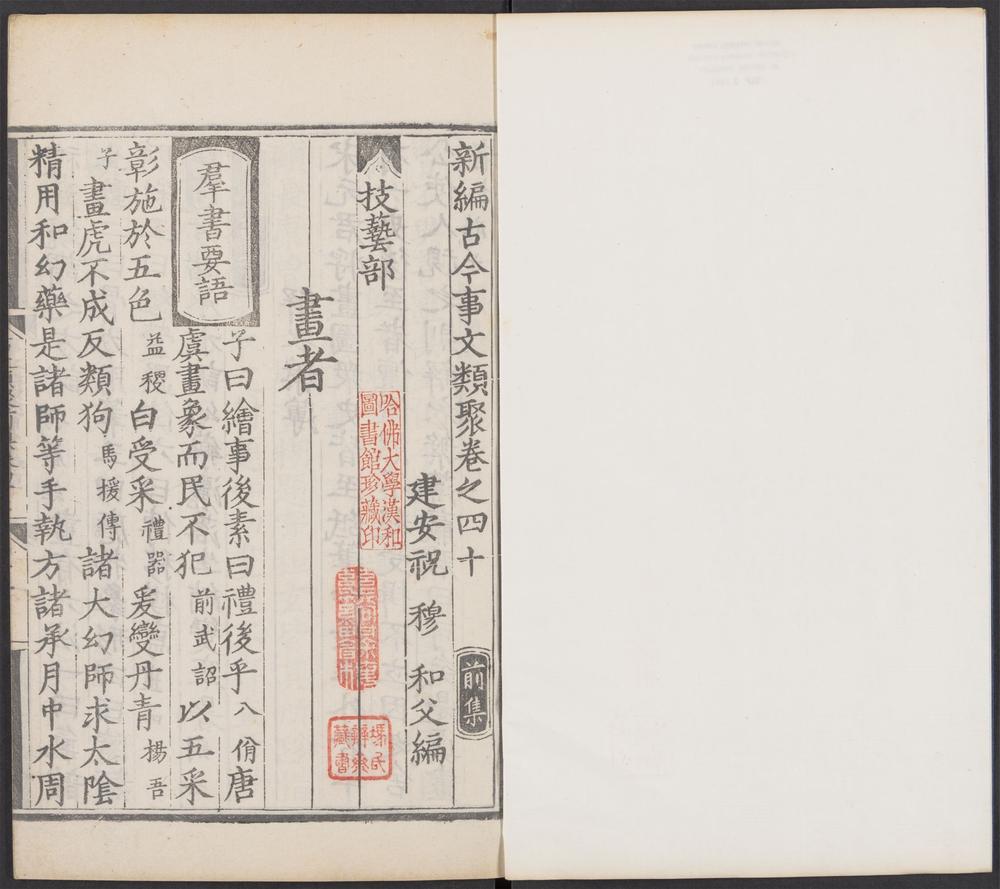 新編古今事文類聚卷之四十
前集
建安祝 穆 和父編
技藝部
哈佛大學漢和
圖書館珍藏印
畫者
羣書要語
子曰繪事後素曰禮後乎八佾唐
虞畫象而民不犯前武詔以五采
彰施於五色益稷白受采禮器爰變丹青揚吾
子畫虎不成反類狗馬援傳諸大幻師求太陰
精用和幻藥是諸師等手執方諸承月中水周